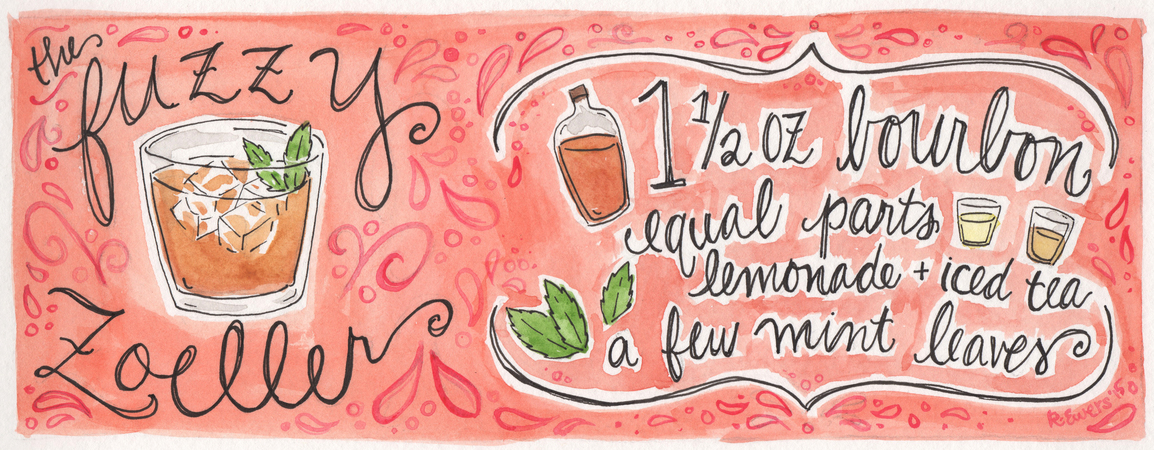 the
fuzzy
Zoeller
1 1/2 oz bourbon
equal parts
lemonade + iced tea
a few mint leaves
R. Ewers '15